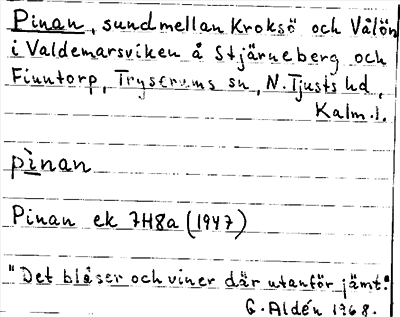 Pinan, sund mellan Kroksö och Vålön
i Valdemarsviken å Stjärneberg och
Finntorp, Tryserums sn, N. Tjusts hd,
Kalm. l.
pìnan
Pinan ek 7H8a (1947)
"Det blåser och viner där utanför jämt."
G. Aldén 1968.